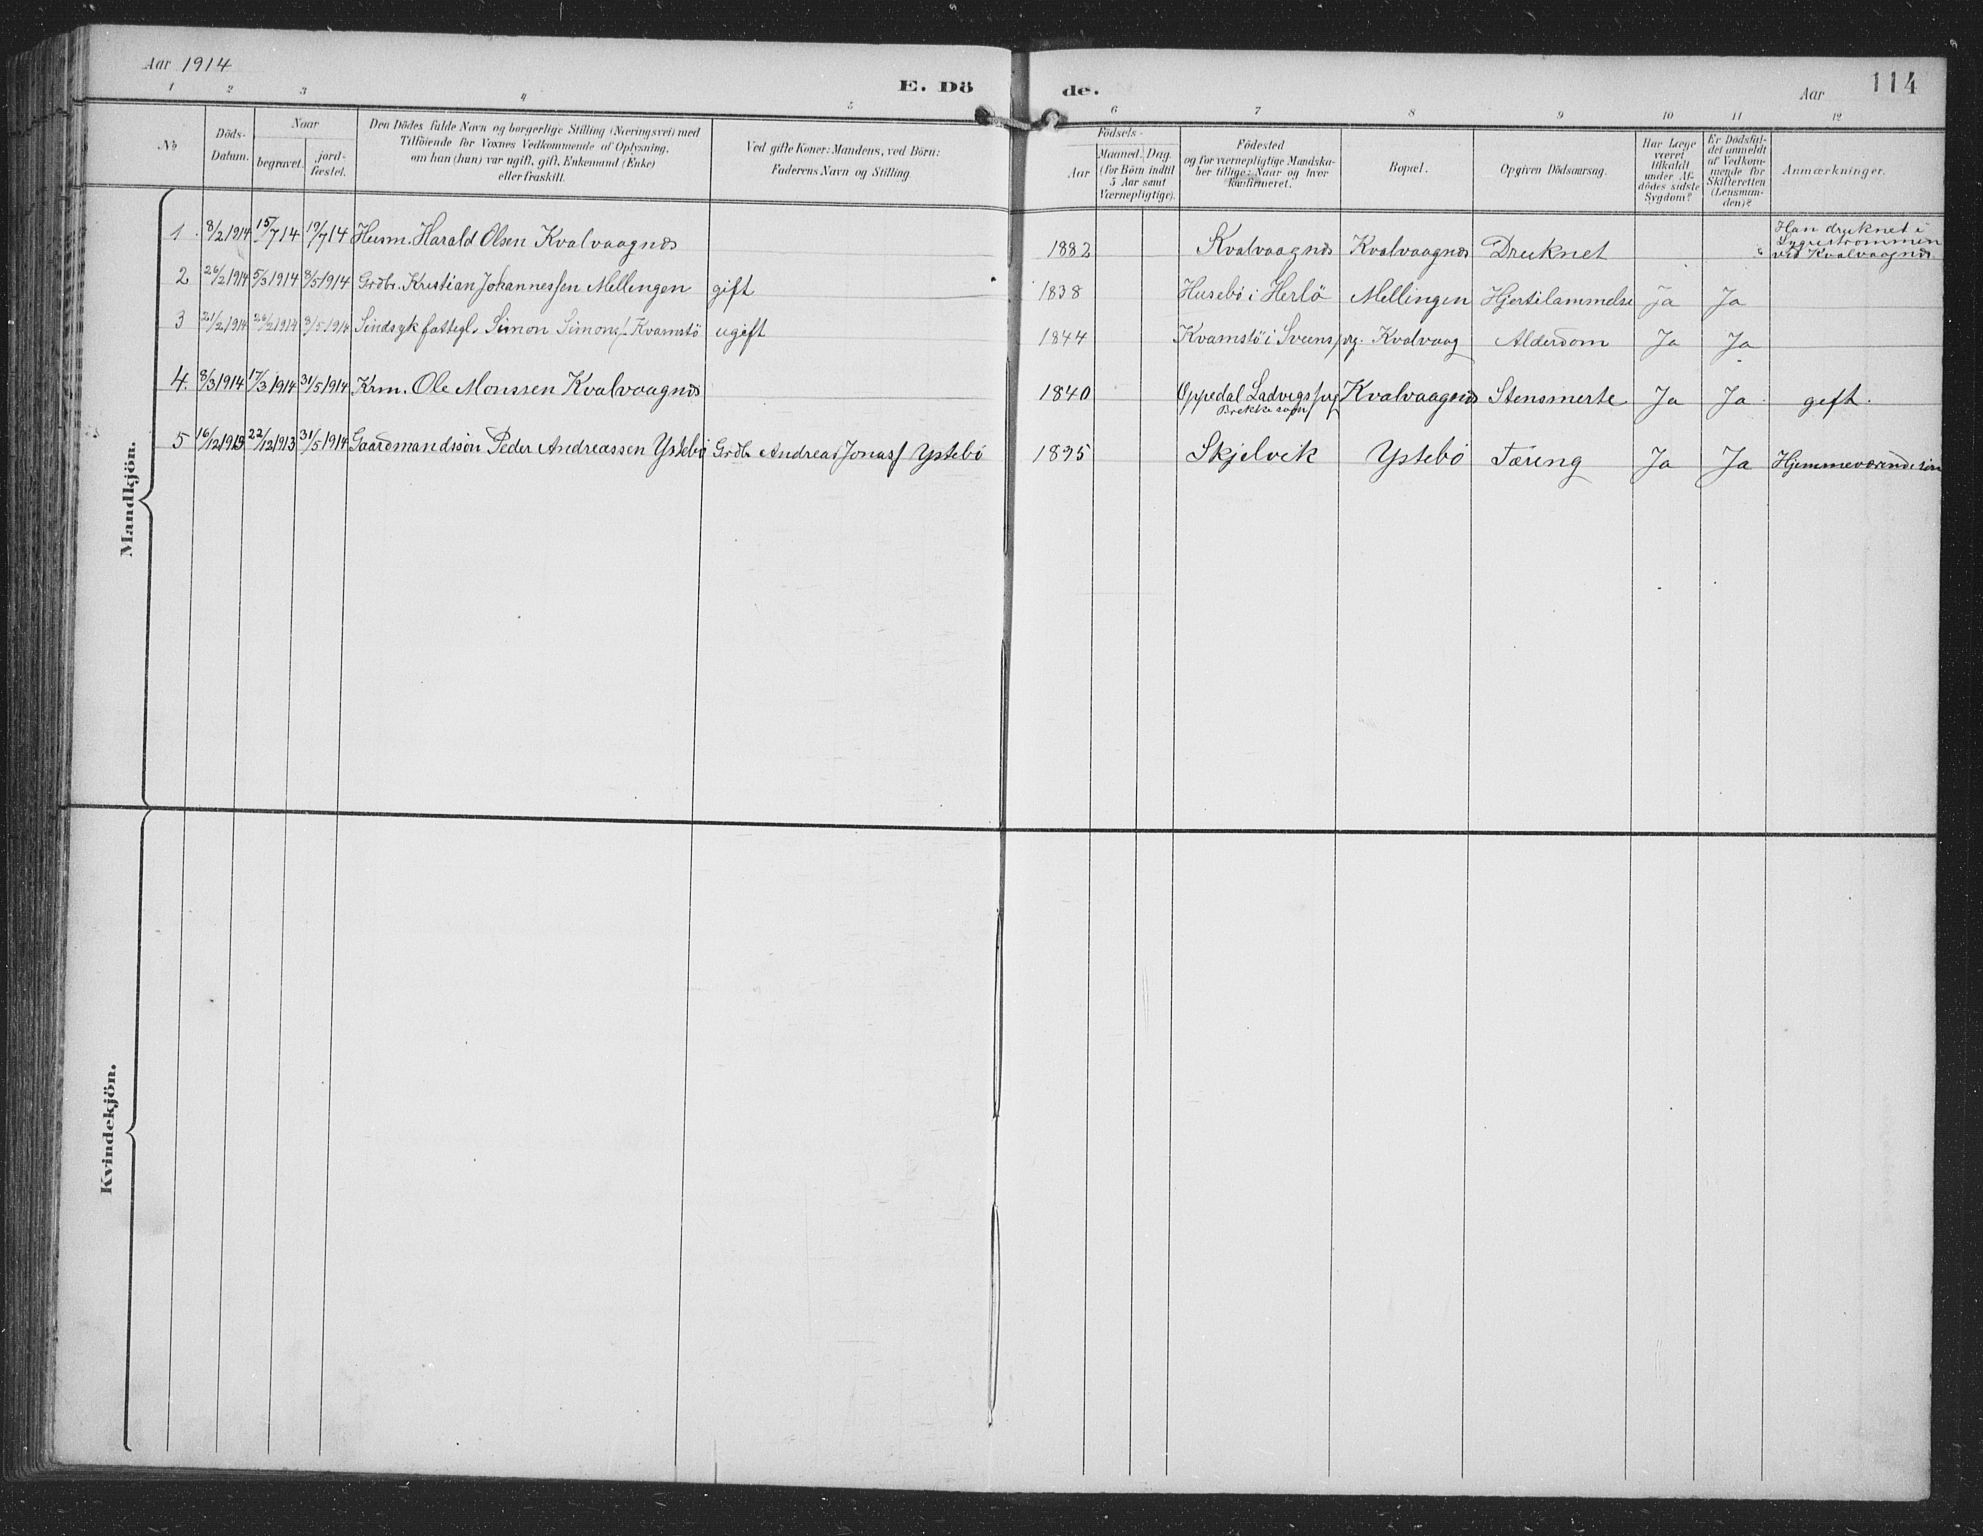 Aar 1914
E. Dö
de.
Aar
114
1 2 3 4 5 6 7 8 9 10 11 12
No
Döds-
Datum.
Naar
begravet.
jord-
fæstet.
Den Dödes fulde Navn og borgerlige Stilling (Næringsvei) med
Tilföiende for Voxnes Vedkommende af Oplysning,
om han (hun) var ugift, gift, Enkemand (Enke)
eller fraskilt.
Ved gifte Koner: Mandens, ved Börn:
Faderens Navn og Stilling.
Födsels-
Aar
Maaned. Dag.
(for Börn indtil
5 Aar samt
Værnepligtige).
Födested
og for værnepligtige Mandska-
ber tillige: Naar og hvor
konfirmeret.
Bopæl.
Opgiven Dödsaarsag.
Har Læge
været
tilkaldt
under Af-
dödes sidste
Sygdom?
Er Dödsfal-
det anmeldt
af Vedkom-
mende for
Skifteretten
(Lensman-
den)?
Anmærkninger.
Mandkjön.
1. 8/2 1914 15/7 14 19/7 14 Husm. Harald Olsen Kvalvaagnes 1882 Kvalvaagnes Kvalvaagnes Druknet Han druknet i
ved Kvalvaagnes
2 26/2 1914 5/3 1914 8/5 1914 Grdbr. Kristian Johannessen Mellingen gift 1838 Husebö i Herlö Mellingen Hjertelammelse Ja Ja
3 21/2 1914 26/2 1914 8/5 1914 Sindsyk fattigl. Simon Simons. Kvamstö ugift 1844 Kvamstö i Kvalvaag Alderdom Ja Ja
4. 8/3 1914 17/3 1914 31/5 1914 Krm. Ole Monssen Kvalvaagnes 1840 Oppedal Ladvigs prg Kvalvaagnes Stensmerte Ja Ja gift.
Brekke sogn
5 16/12 1913 22/12 1913 31/5 1914 Gaardmandssön Peder Andreassen Ystebö Grdb. Andreas Jonas Ystebö 1895 Skjelvik Ystebö Tæring Ja Ja Hjemmeværende sön
Kvindekjön.